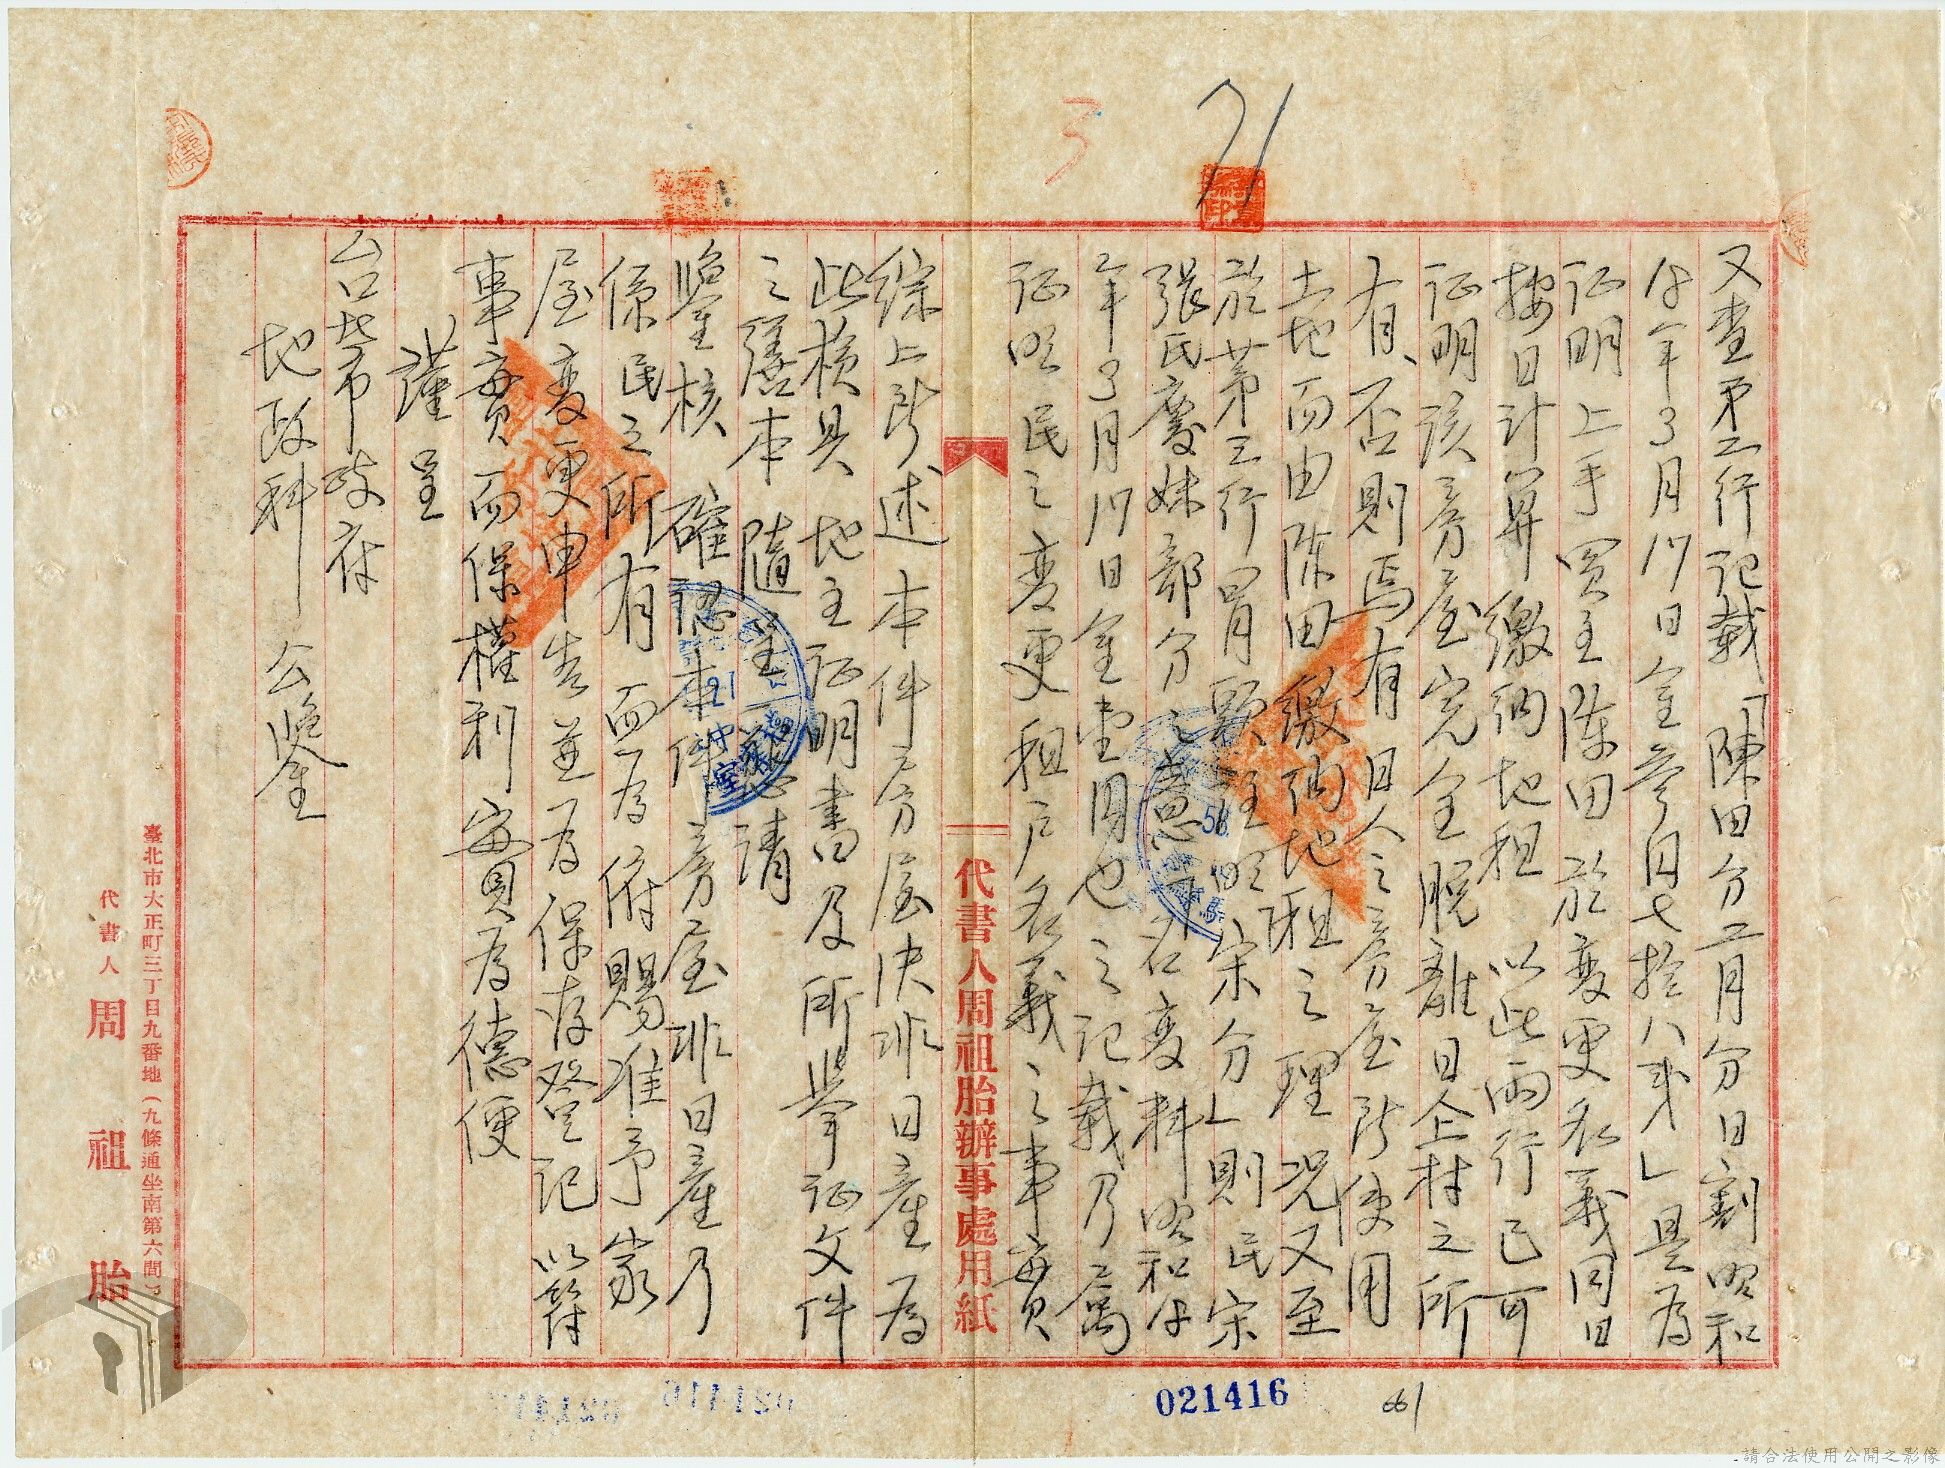 又查第二行記載「陳田分二月分日割昭和
15年3月17日金參円七拾八戋」是為
证明上手買主陈田於变更名義同日
按日计算缴纳地租以此兩行已可
证明该房屋完全脱離日企村之所
有、否則焉有日人之房屋所使用
土地而由陈田缴纳地租之理况又至
於第三行冒顕註明宋分」则民宋
張氏慶妹部分之意名变料昭和15
年3月17日金壹円也之记载乃属
证明民之变更租户名義之事實
综上所述本件房屋决非日產為
此檢具地主证明書及所举证文件
之謄本隨呈懇请
鑒核確認本件房屋非日產乃
係民之所有而為俯賜准予家
屋变更申告並為保存登记以符
事實而保權利安實為德便
謹呈
台北市政府
地政科 公鑒
代書人周祖胎辦事處用紙
臺北市大正町三丁目九番地(九條通坐南第六間)
代書人 周祖胎
71
3
021416
61
請合法使用公開之影像